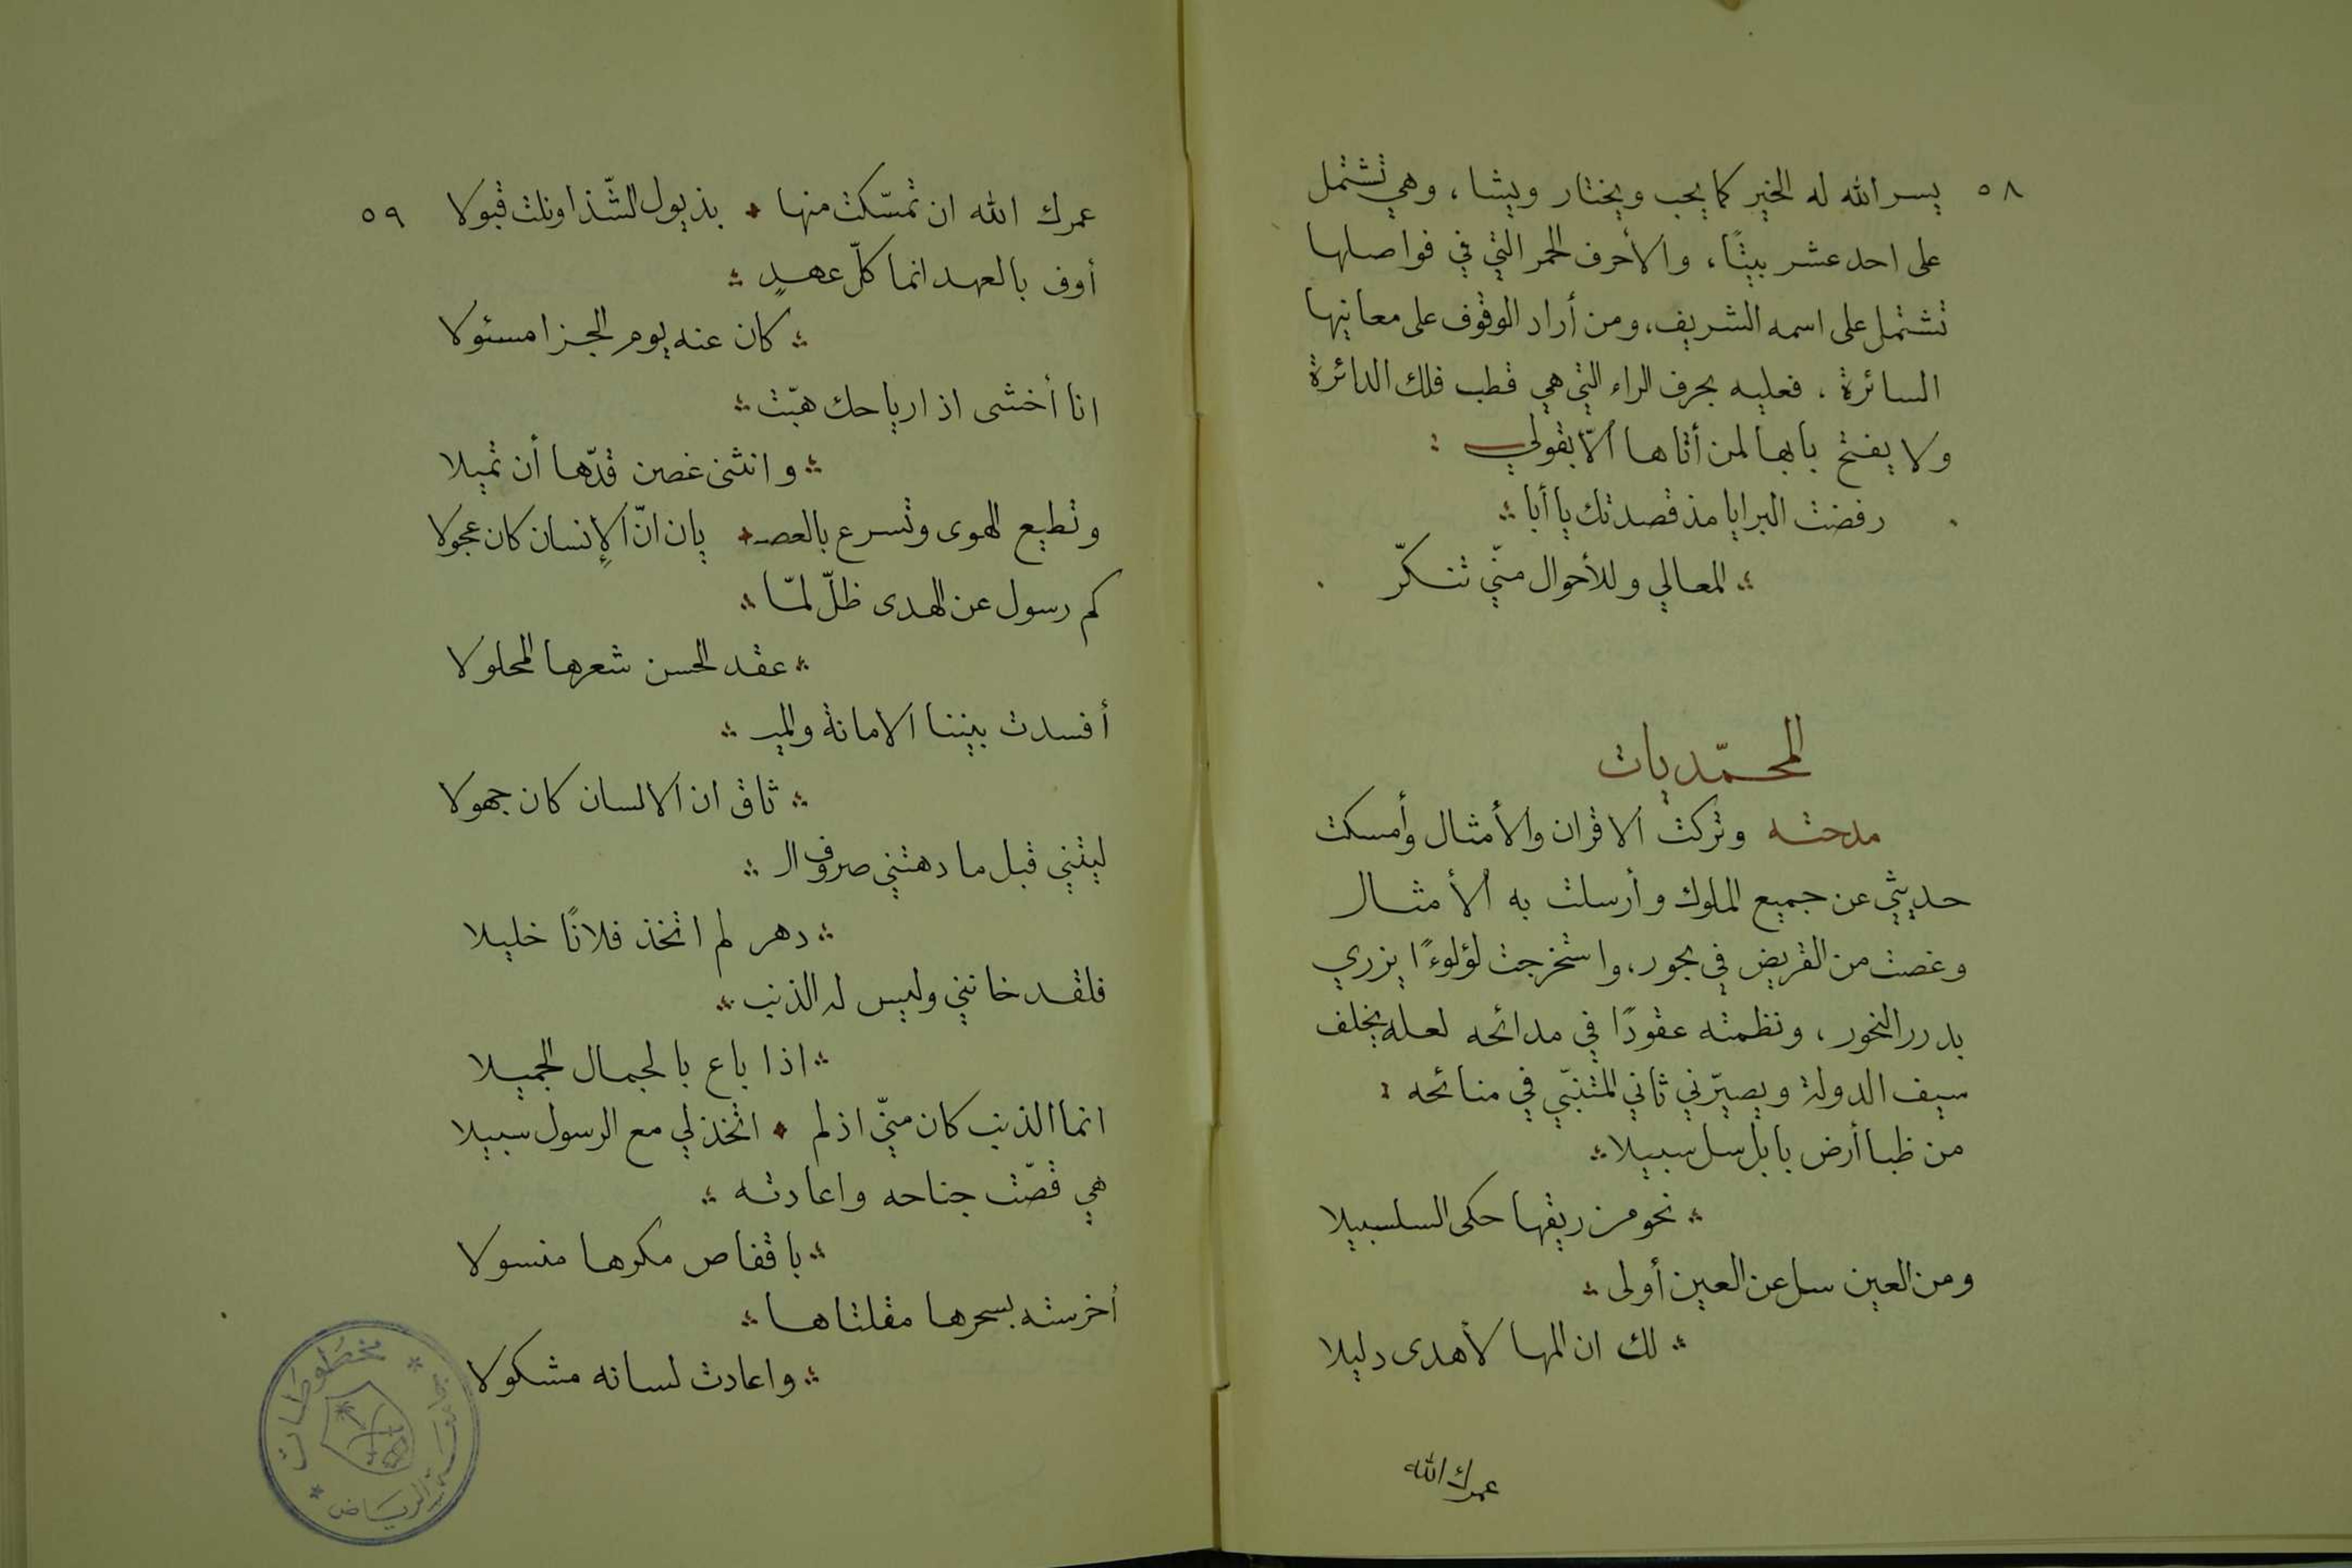 ٥٨
يسر الله له الخير كما يحب ويختار ويشا، وهي تشتمل
على احد عشر بيتًا، والأحرف الحمر التي في فواصلها
تشتمل على اسمه الشريف، ومن أراد الوقوف على معانيها
السائرة، فعليه بحرف الراء التي هي قطب فلك الدائرة
ولا يفتح بابها لمن أتاها ألّا بقولي :
رفضت البرايا مذ قصدتك يا أبا
المعالي وللأحوال منّي تنكرّ
المحمّديات
مدحته وتركت الاقران والأمثال وأمسكت
حديثي عن جميع الملوك وأرسلت به الأمثال
وغصت من القريض في بحور، واستخرجت لؤلوءًا يزري
بدرر النحور، ونظمته عقودًا في مدائحه لعله يخلف
سيف الدولة ويصيّرني ثاني المتنبّي في منائحه :
من ظبا أرض بابل سل سبيلا
نحو من ريقها حكى السلسبيلا
ومن العين سل عن العين أولى
لك ان المها لأهدى دليلا
عمرك الله
٥٩
عمرك الله ان تمسّكت منها بذيول الشّذا ونلت قبولا
أوف بالعهد انما كلّ عهدٍ
كان عنه يوم الجزا مسئولا
انا أخشى اذا رياحك هبّت
وانثنى غصن قدّها أن تميلا
وتطيع الهوى وتسرع بالعصـ يان انّ الإنسان كان عجولا
كم رسول عن الهدى ظلّ لمّا
عقد الحسن شعرها المحلولا
أفسدت بيننا الامانة والميـ
ثاق ان الانسان كان جهولا
ليتني قبل ما دهتني صروف الـ
دهر لم اتخذ فلانًا خليلا
فلقد خانني وليس له الذنب
اذا باع بالجمال الجميلا
انما الذنب كان منّي اذ لم اتخذ لي مع الرسول سبيلا
هي قصّت جناحه واعادته
باقفاص مكرها منسولا
أخرسته بسحرها مقلتاها
واعادت لسانه مشكولا
مخطوطات
جامعة الرياض